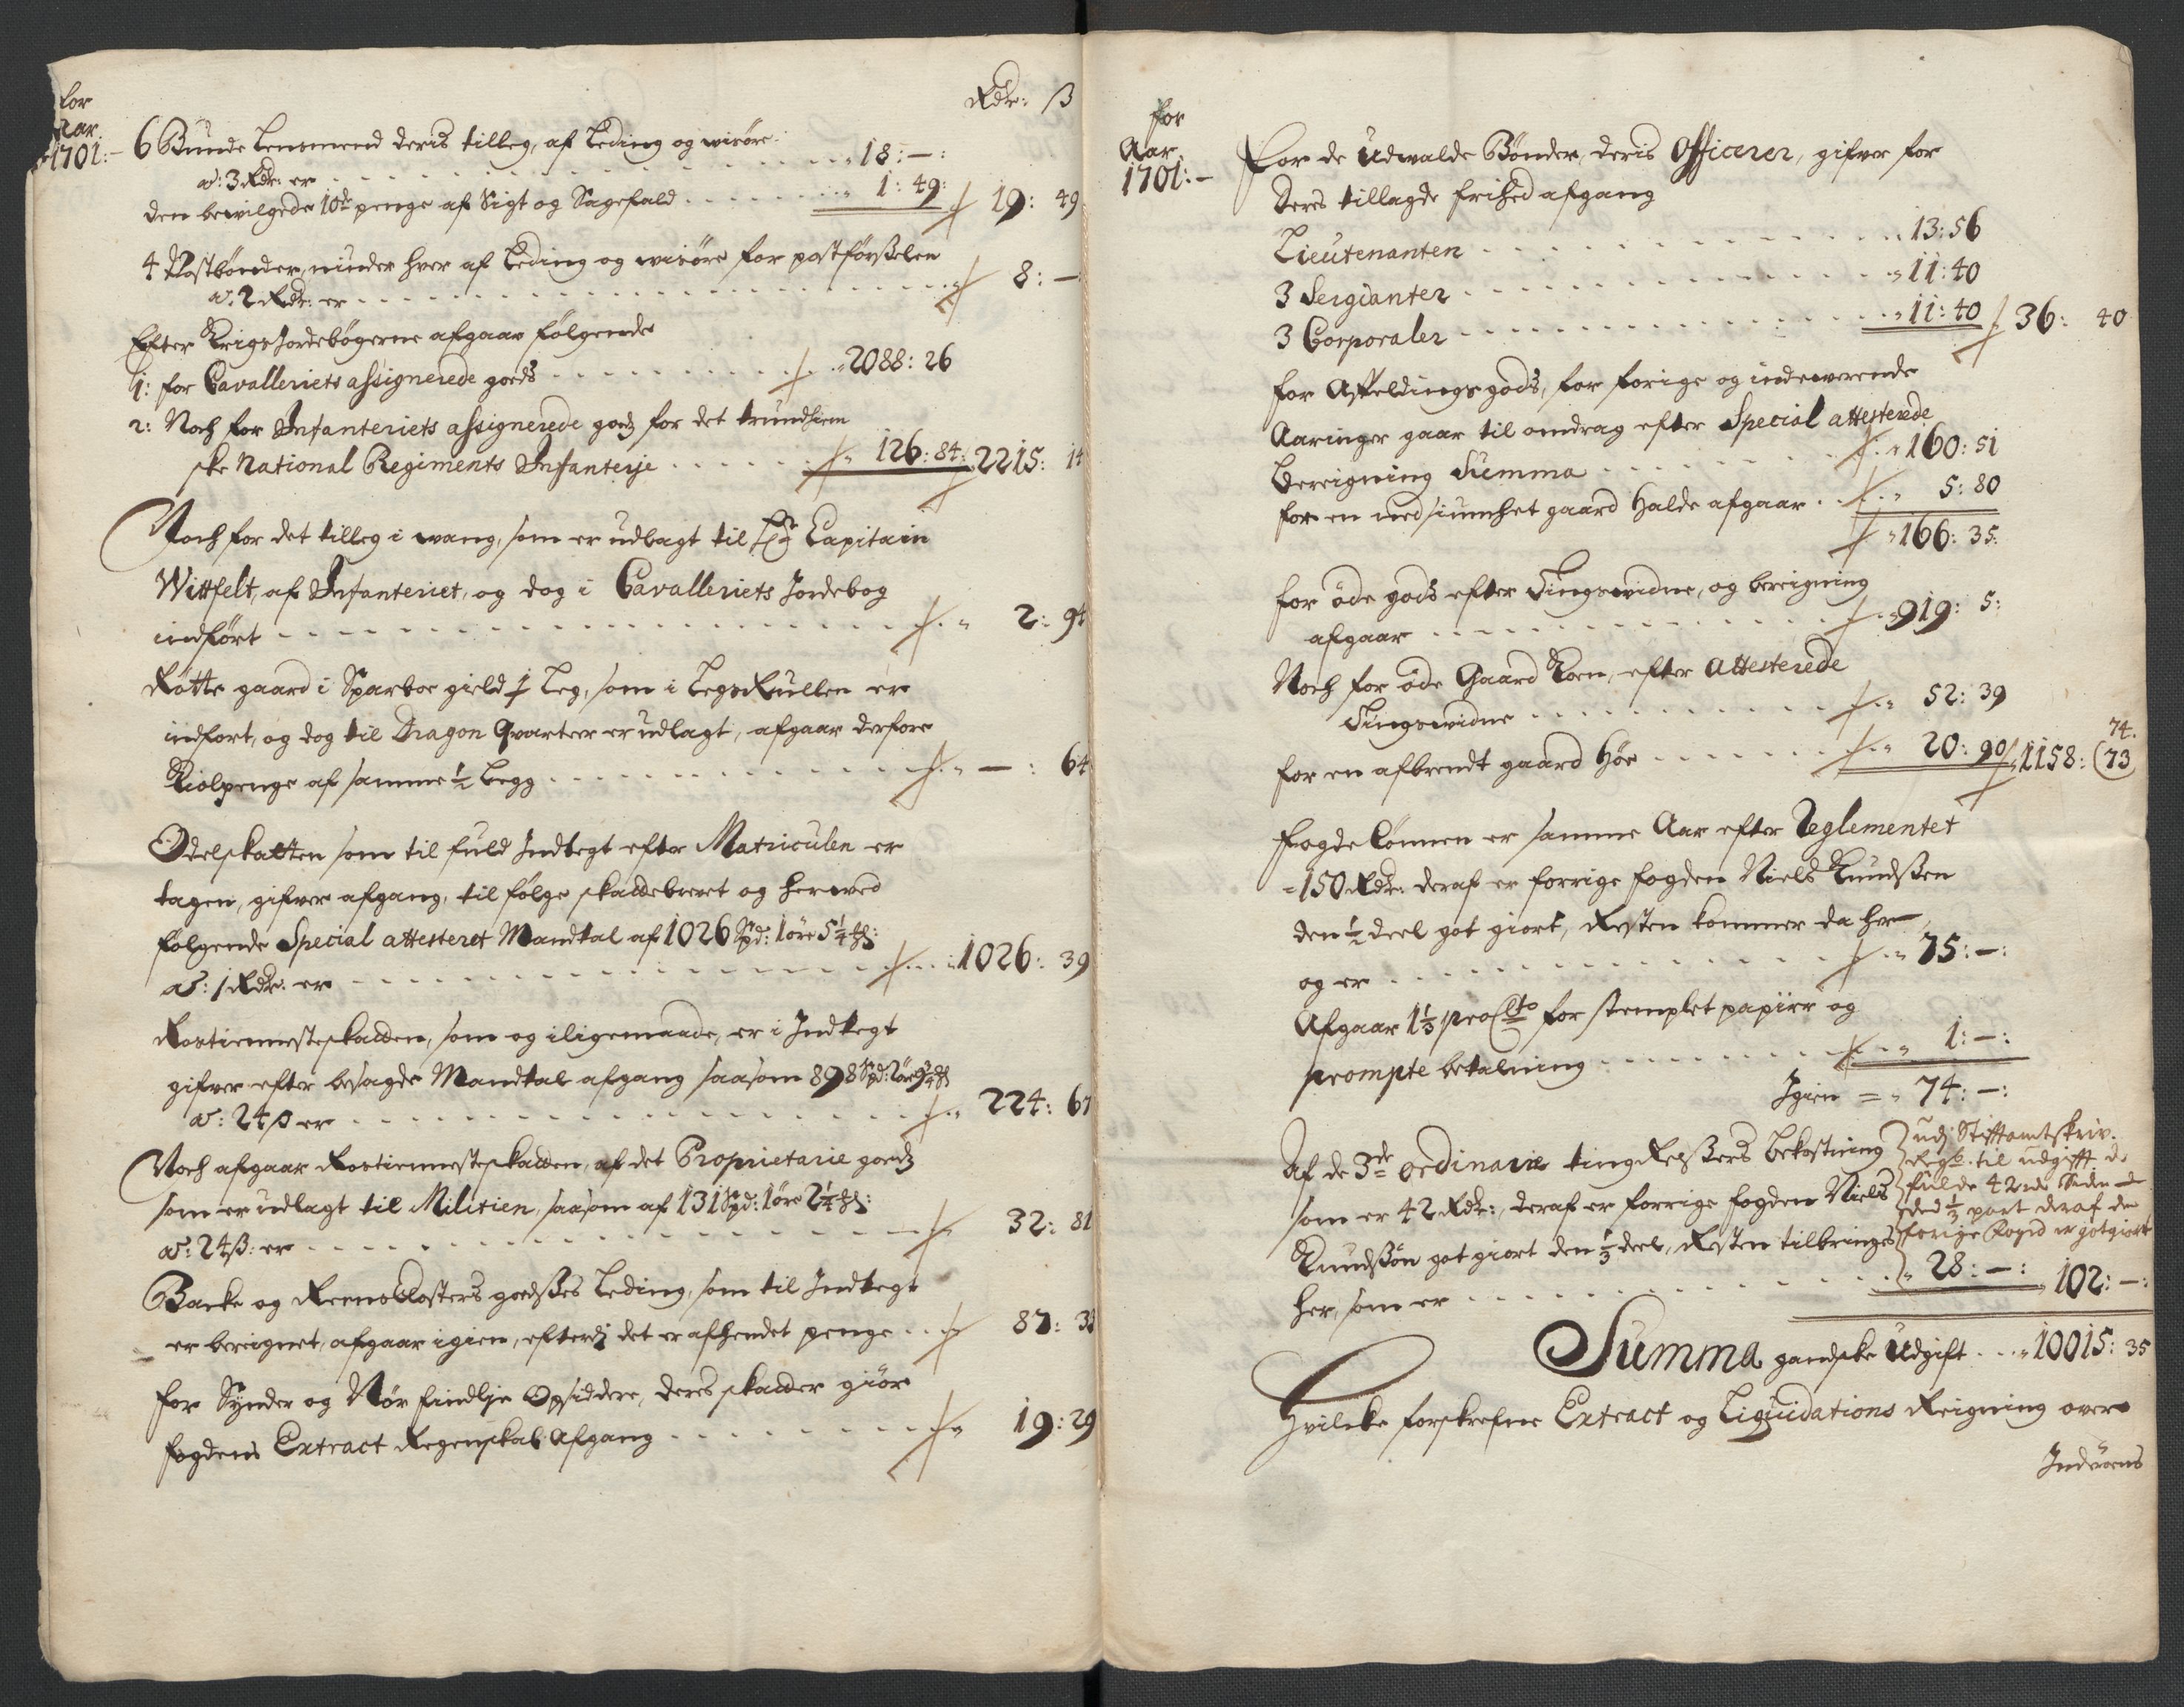 for
Aar
1701:-
Rdr: ß
6 Bunde Lensmend deris tilleg, af Leding og wisöre
a: 3 Rdr: er 18:-:
den bewilgede 10de penge af Sigt og Sagefald 1: 49: 19: 49
4 Postbönder, niuder hver af Leding og wisöre for postförßelen
a: 2 Rdr: er 8: -
Efter Krigs Jordebögerne afgaar følgende
1: for Cavalleriets assignerede gods 2088: 26
2: Noch for Infanteriets assignerede gods for det trundhiem
ske National Regiments Infanterje 126: 84: 2215: 14
Noch for det tilleg i wang, som er udlagt til Hr Capitain
Wittfelt, af Infanteriet, og dog i Cavalleriets Jordebog
indført 2: 94
Røtte gaard i Sparboe gield ½ Leg, som i Legs Rullen er
indfort, og dog til Dragon Qvarteer er udlagt, afgaar derfore
Kiolpenge af samme ½ Legg - : 64
Odelskatten som til fuld Indtegt efter Matriculen er
tagen, gifver afgang, til følge skattebrevet og herwed
følgende Special attesteret Mandtal af 1026 Spd: 1 öre 5¼ ß:
a: 1 Rdr: er 1026: 39
Rostienneste skatten, som og iligemaade, er i Indtegt
gifver efter besagde Mandtal afgang saasom 898 Spd: 2 öre 9¾ ß
a: 24 ß er 224: 67
Noch afgaar Rostienneste skatten, af det Proprietarie gods
som er udlagt til Militien, saasom af 131 Spd: 1 öre 2¼ ß:
a: 24 ß: er 32: 81
Backe og Reensklosters godßes Leding, som til Indtegt
er bereignet, afgaar igien, efterdj det er afhendet penge 87: 33
for Synder og Nør findlje Opsiddere, deres skatter giör
fogdens Extract Regenskab Afgang 19: 29
for
Aar
1701:-
For de Udwalde Bönder, deris Officerer, gifver for
deres tillagde frihed afgang
Lieutenanten 13: 56
3 Sergianter 11: 40
3 Corporaler 11: 40 36: 40
for Affeldings gods, for forige og indewerende
Aaringer gaar til omdrag efter Special attesterede
Bereigning Summa 160: 51
for en ned siuncket gaard Halde afgaar 5: 80
166: 35:
for öde gods efter Tingswidne, og bereigning
afgaar 919: 5:
Noch for öde Gaard Koen, efter Attesterede
Tingswidne 52: 39
74.
for en afbrendt gaard Höe 20: 90 1158: 73
fogde Lönnen er samme Aar efter Reglementet
150 Rdr: deraf er forrige fogden Niels Knudßen
den ½ deel got giort, Resten kommer da her
og er 75:-:
Afgaar 1⅓ pro Cto for stemplet papiir og
prompte betalning 1:-:
Igien = 74:-:
Af de 3de ordinarie ting Reyßers Bekostning
som er 42 Rdr:, deraf er forrige fogden Niels
Knudßön got giort den ⅓ deel, Resten tilbringes
her, som er 28:-: 102:-:
udj Stiftamtskriv.
Regsk. til udgift de
fulde 42 Rdr
ded ⅓ part deraf den
forige Fogd er gotgiort
Summa gandske Udgift 10015: 35
Hvilcke forskrefne Extract og Liquidations Reigning over
Inderöens